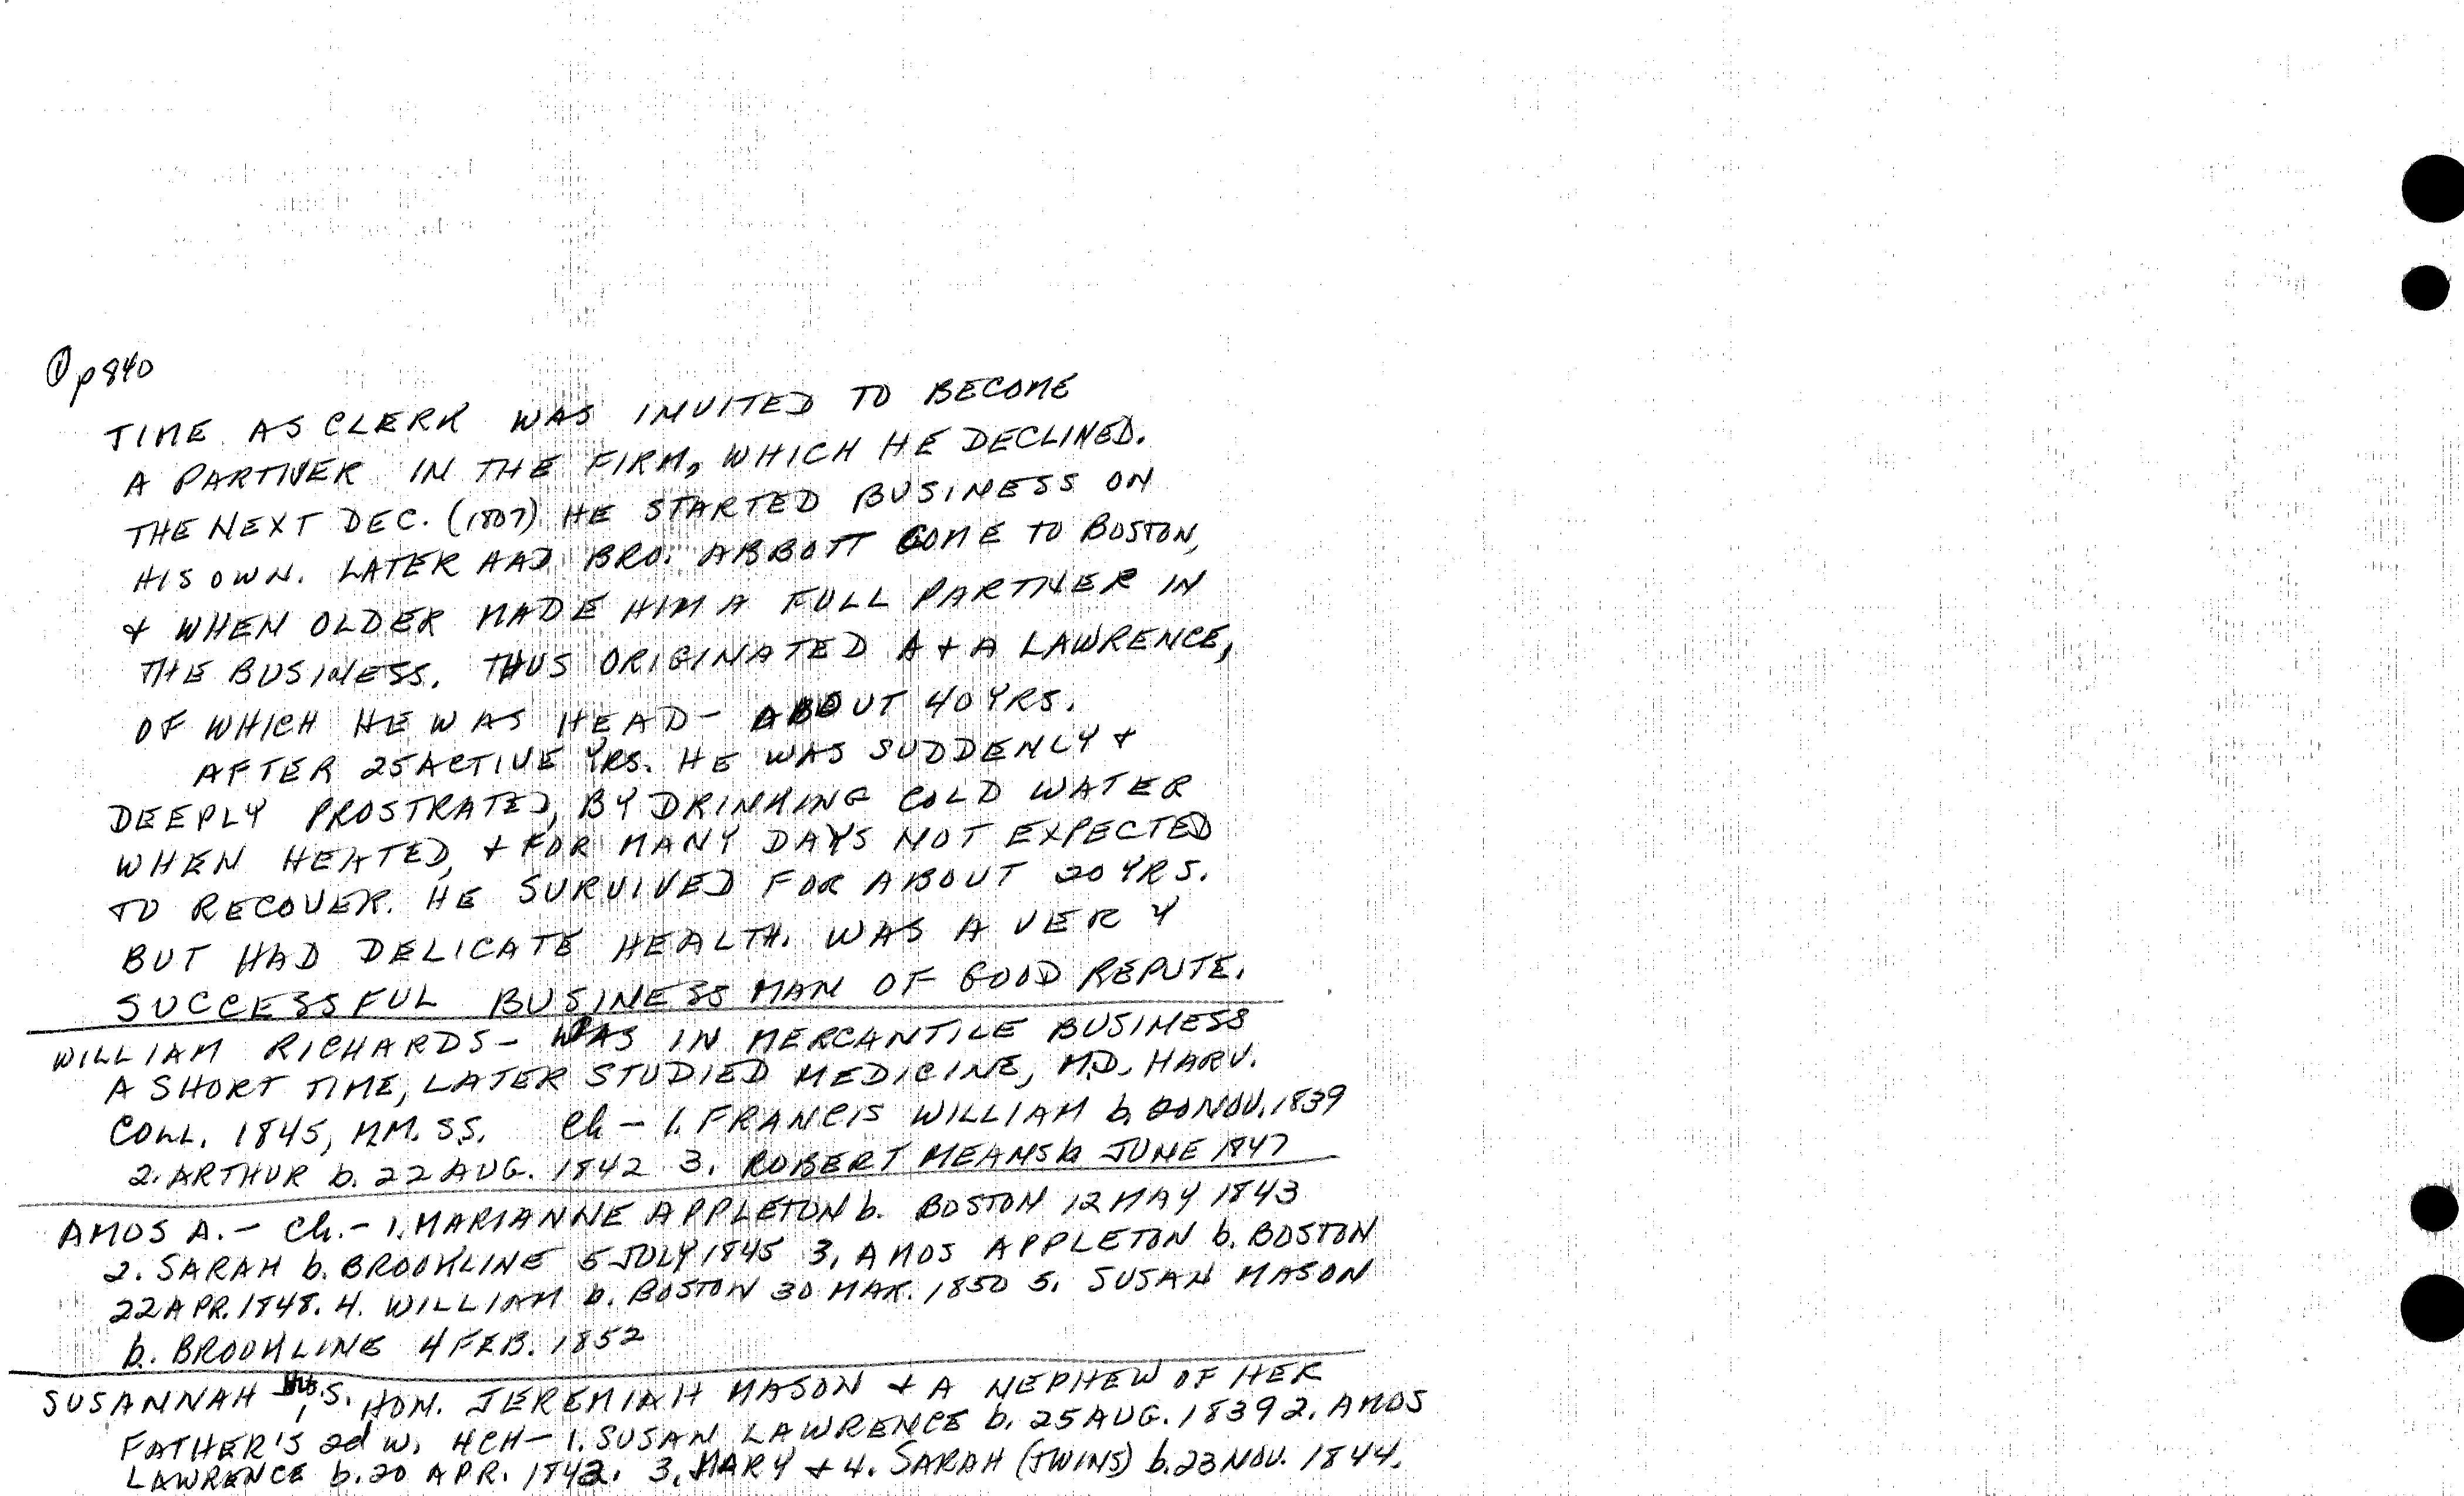 ① p840
TIME AS CLERK WAS INVITED TO BECOME
A PARTNER IN THE FIRM, WHICH HE DECLINED.
THE NEXT DEC. (1807) HE STARTED BUSINESS ON
HIS OWN. LATER HAD BRO. ABBOTT COME TO BOSTON,
& WHEN OLDER MADE HIM A FULL PARTNER IN
THE BUSINESS. THUS ORIGINATED A & A LAWRENCE,
OF WHICH HE WAS HEAD - ABOUT 40 YRS.
AFTER 25 ACTIVE YRS. HE WAS SUDDENLY &
DEEPLY PROSTRATED, BY DRINKING COLD WATER
WHEN HEATED, & FOR MANY DAYS NOT EXPECTED
TO RECOVER. HE SURVIVED FOR ABOUT 20 YRS.
BUT HAD DELICATE HEALTH. WAS A VERY
SUCCESSFUL BUSINESS MAN OF GOOD REPUTE.
WILLIAM RICHARDS - WAS IN MERCANTILE BUSINESS
A SHORT TIME, LATER STUDIED MEDICINE, M.D. HARV.
COLL. 1845, M.M.SS. Ch - 1. FRANCIS WILLIAM b. 20 NOV. 1839
2. ARTHUR b. 22 AUG. 1842 3. ROBERT MEANS b JUNE 1847
AMOS A. - Ch. - 1. MARIANNE APPLETON b. BOSTON 12 MAY 1843
2. SARAH b. BROOKLINE 5 JULY 1845 3. AMOS APPLETON b. BOSTON
22 APR. 1848. 4. WILLIAM b. BOSTON 30 MAR. 1850 5. SUSAN MASON
b. BROOKLINE 4 FEB. 1852
SUSANNAH S. HON. JEREMIAH MASON & A NEPHEW OF HER
FATHER'S 2d W. 4CH - 1. SUSAN LAWRENCE b. 25 AUG. 1839 2. AMOS
LAWRENCE b. 20 APR. 1842. 3. MARY & 4. SARAH (TWINS) b. 23 NOV. 1844.